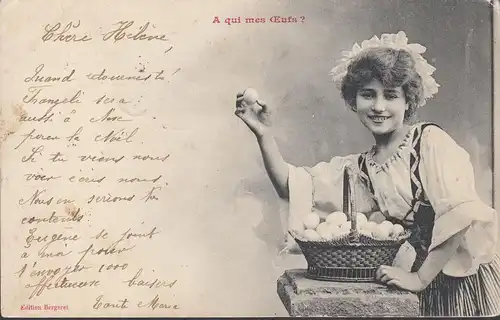 A qui mes Œufs?
Chère Hélène,
Quand retournes tu!
sera
aussi à Noé
pour la Noël.
Si tu viens nous
voir écris nous
Nous en serions très
contents.
Eugène se joint
à moi pour
t'envoyer 1000
affectueux baisers
Tante Maria
Edition Bergeret